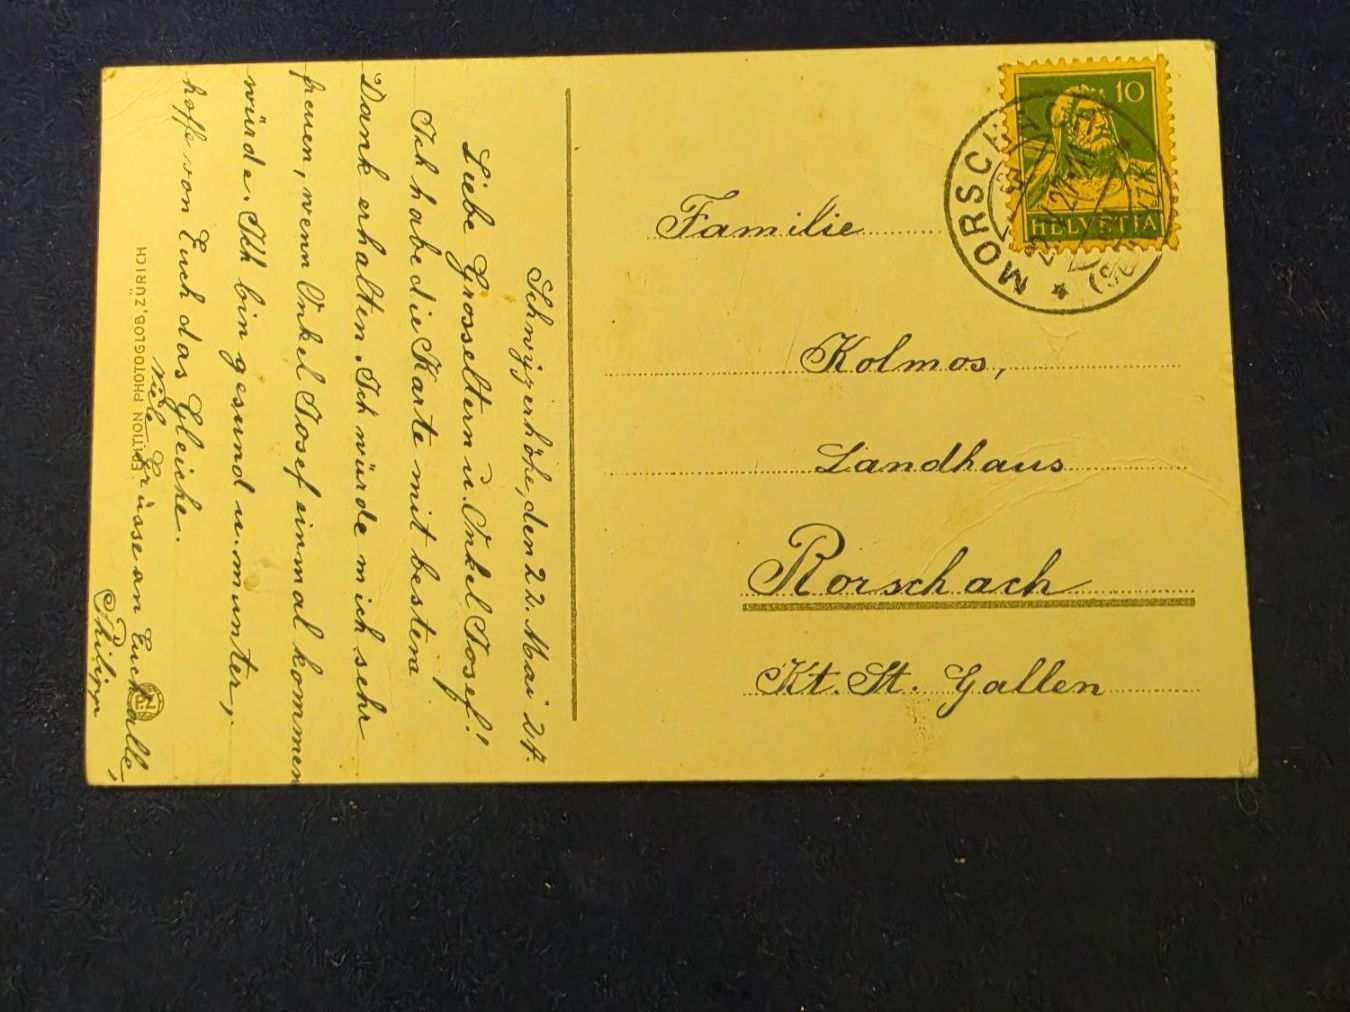 Schwyzerhöhe, den 22. Mai 27.
Liebe Grosseltern u. Onkel Josef!
Ich habe die Karte mit bestem
Dank erhalten. Ich würde mich sehr
freuen, wenn Onkel Josef einmal kommen
würde. Ich bin gesund u. munter,
hoffe von Euch das Gleiche.
Viele Grüsse an Euch alle,
Philipp
EDITION PHOTOGLOB, ZÜRICH
Familie
Kolmos,
Landhaus
Rorschach
Kt. St. Gallen
10
HELVETIA
MORSCH